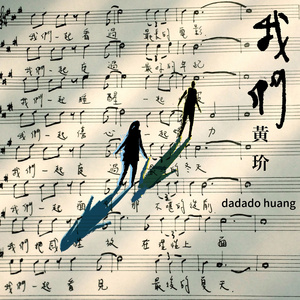 我們
黃玠
dadado huang
我們一起看過 最美的
我們一起 過 最好的年紀
我們一起睡醒 一起
我們一起傷心 一起 力
我們一起度過 的冬天
我們一起面 那不堪的從前
我們把 放 在 上 面
我們一起看見 最後的夏天